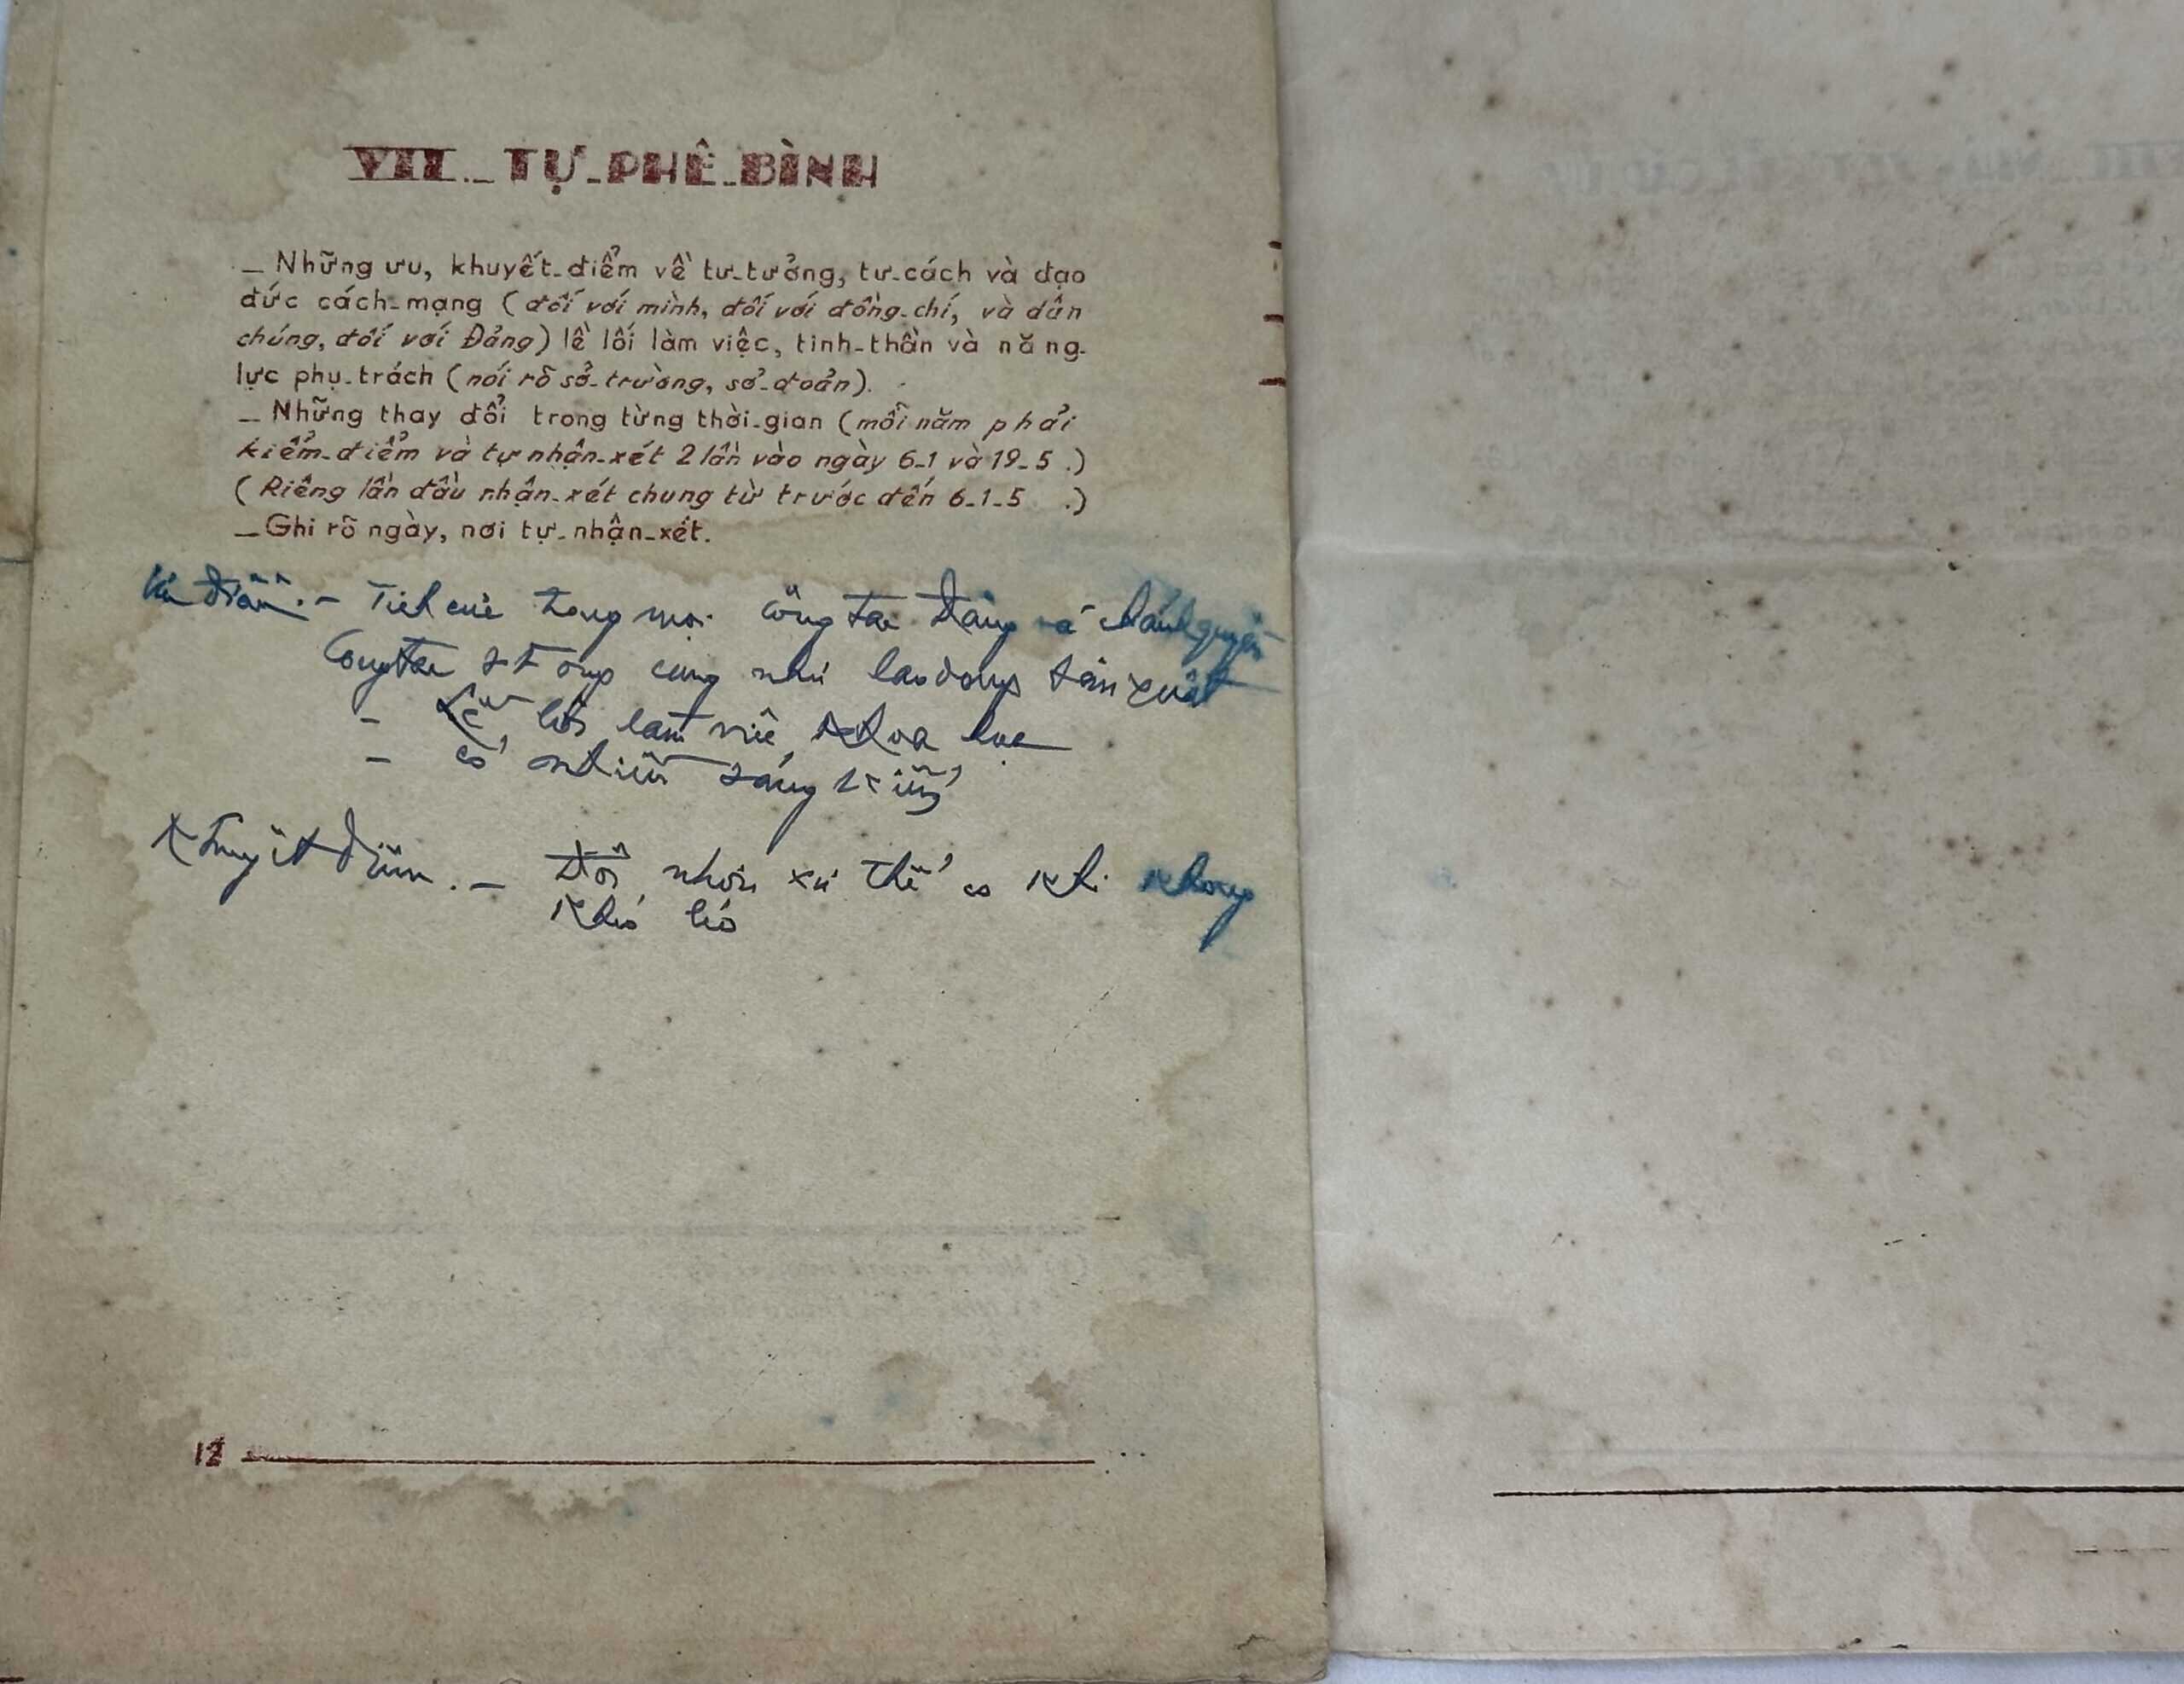 VII._ TỰ_PHÊ_BÌNH
_ Những ưu, khuyết_điểm về tư_tưởng, tư_cách và đạo
đức cách_mạng (đối với mình, đối với đồng_chí, và dân
chúng, đối với Đảng) lề lối làm việc, tinh_thần và năng_
lực phụ_trách (nói rõ sở_trường, sở_đoản).
_ Những thay đổi trong từng thời_gian (mỗi năm phải
kiểm_điểm và tự nhận_xét 2 lần vào ngày 6_1 và 19_5.)
(Riêng lần đầu nhận_xét chung từ trước đến 6_1_5 .)
_Ghi rõ ngày, nơi tự_nhận_xét.
Ưu điểm._ Tích cực trong mọi công tác Đảng và chánh quyền
Công tác cũng như lao động sản xuất
- Lề lối làm việc khoa học
- có nhiều sáng kiến
Khuyết điểm._ Đối nhân xử thế có khi không
khéo léo
12